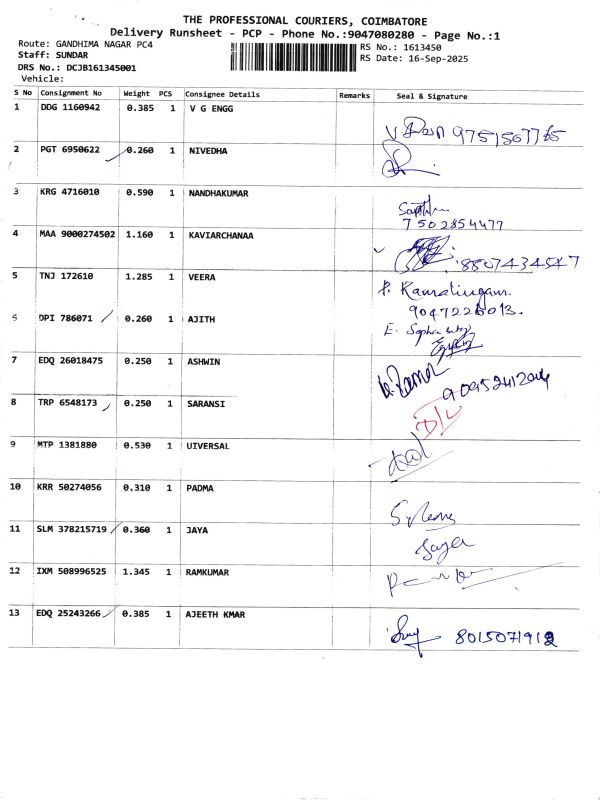 THE PROFESSIONAL COURIERS, COIMBATORE
Delivery Runsheet - PCP - Phone No.:9047080280 - Page No.:1
Route: GANDHIMA NAGAR PC4
RS No.: 1613450
Staff: SUNDAR
RS Date: 16-Sep-2025
DRS No.: DCJB161345001
Vehicle:
S No Consignment No Weight PCS Consignee Details Remarks Seal & Signature
1 DDG 1160942 0.385 1 V G ENGG
9751567765
2 PGT 6950622 0.260 1 NIVEDHA
3 KRG 4716010 0.590 1 NANDHAKUMAR
7502854477
4 MAA 9000274502 1.160 1 KAVIARCHANAA
8807434547
5 TNJ 172610 1.285 1 VEERA
P. Kamalingam.
9047226013.
6 DPI 786071 0.260 1 AJITH
E.
7 EDQ 26018475 0.250 1 ASHWIN
8 TRP 6548173 0.250 1 SARANSI
D/L
9 MTP 1381880 0.530 1 UIVERSAL
10 KRR 50274056 0.310 1 PADMA
11 SLM 378215719 0.360 1 JAYA
Jaya
12 IXM 508996525 1.345 1 RAMKUMAR
13 EDQ 25243266 0.385 1 AJEETH KMAR
8015071912